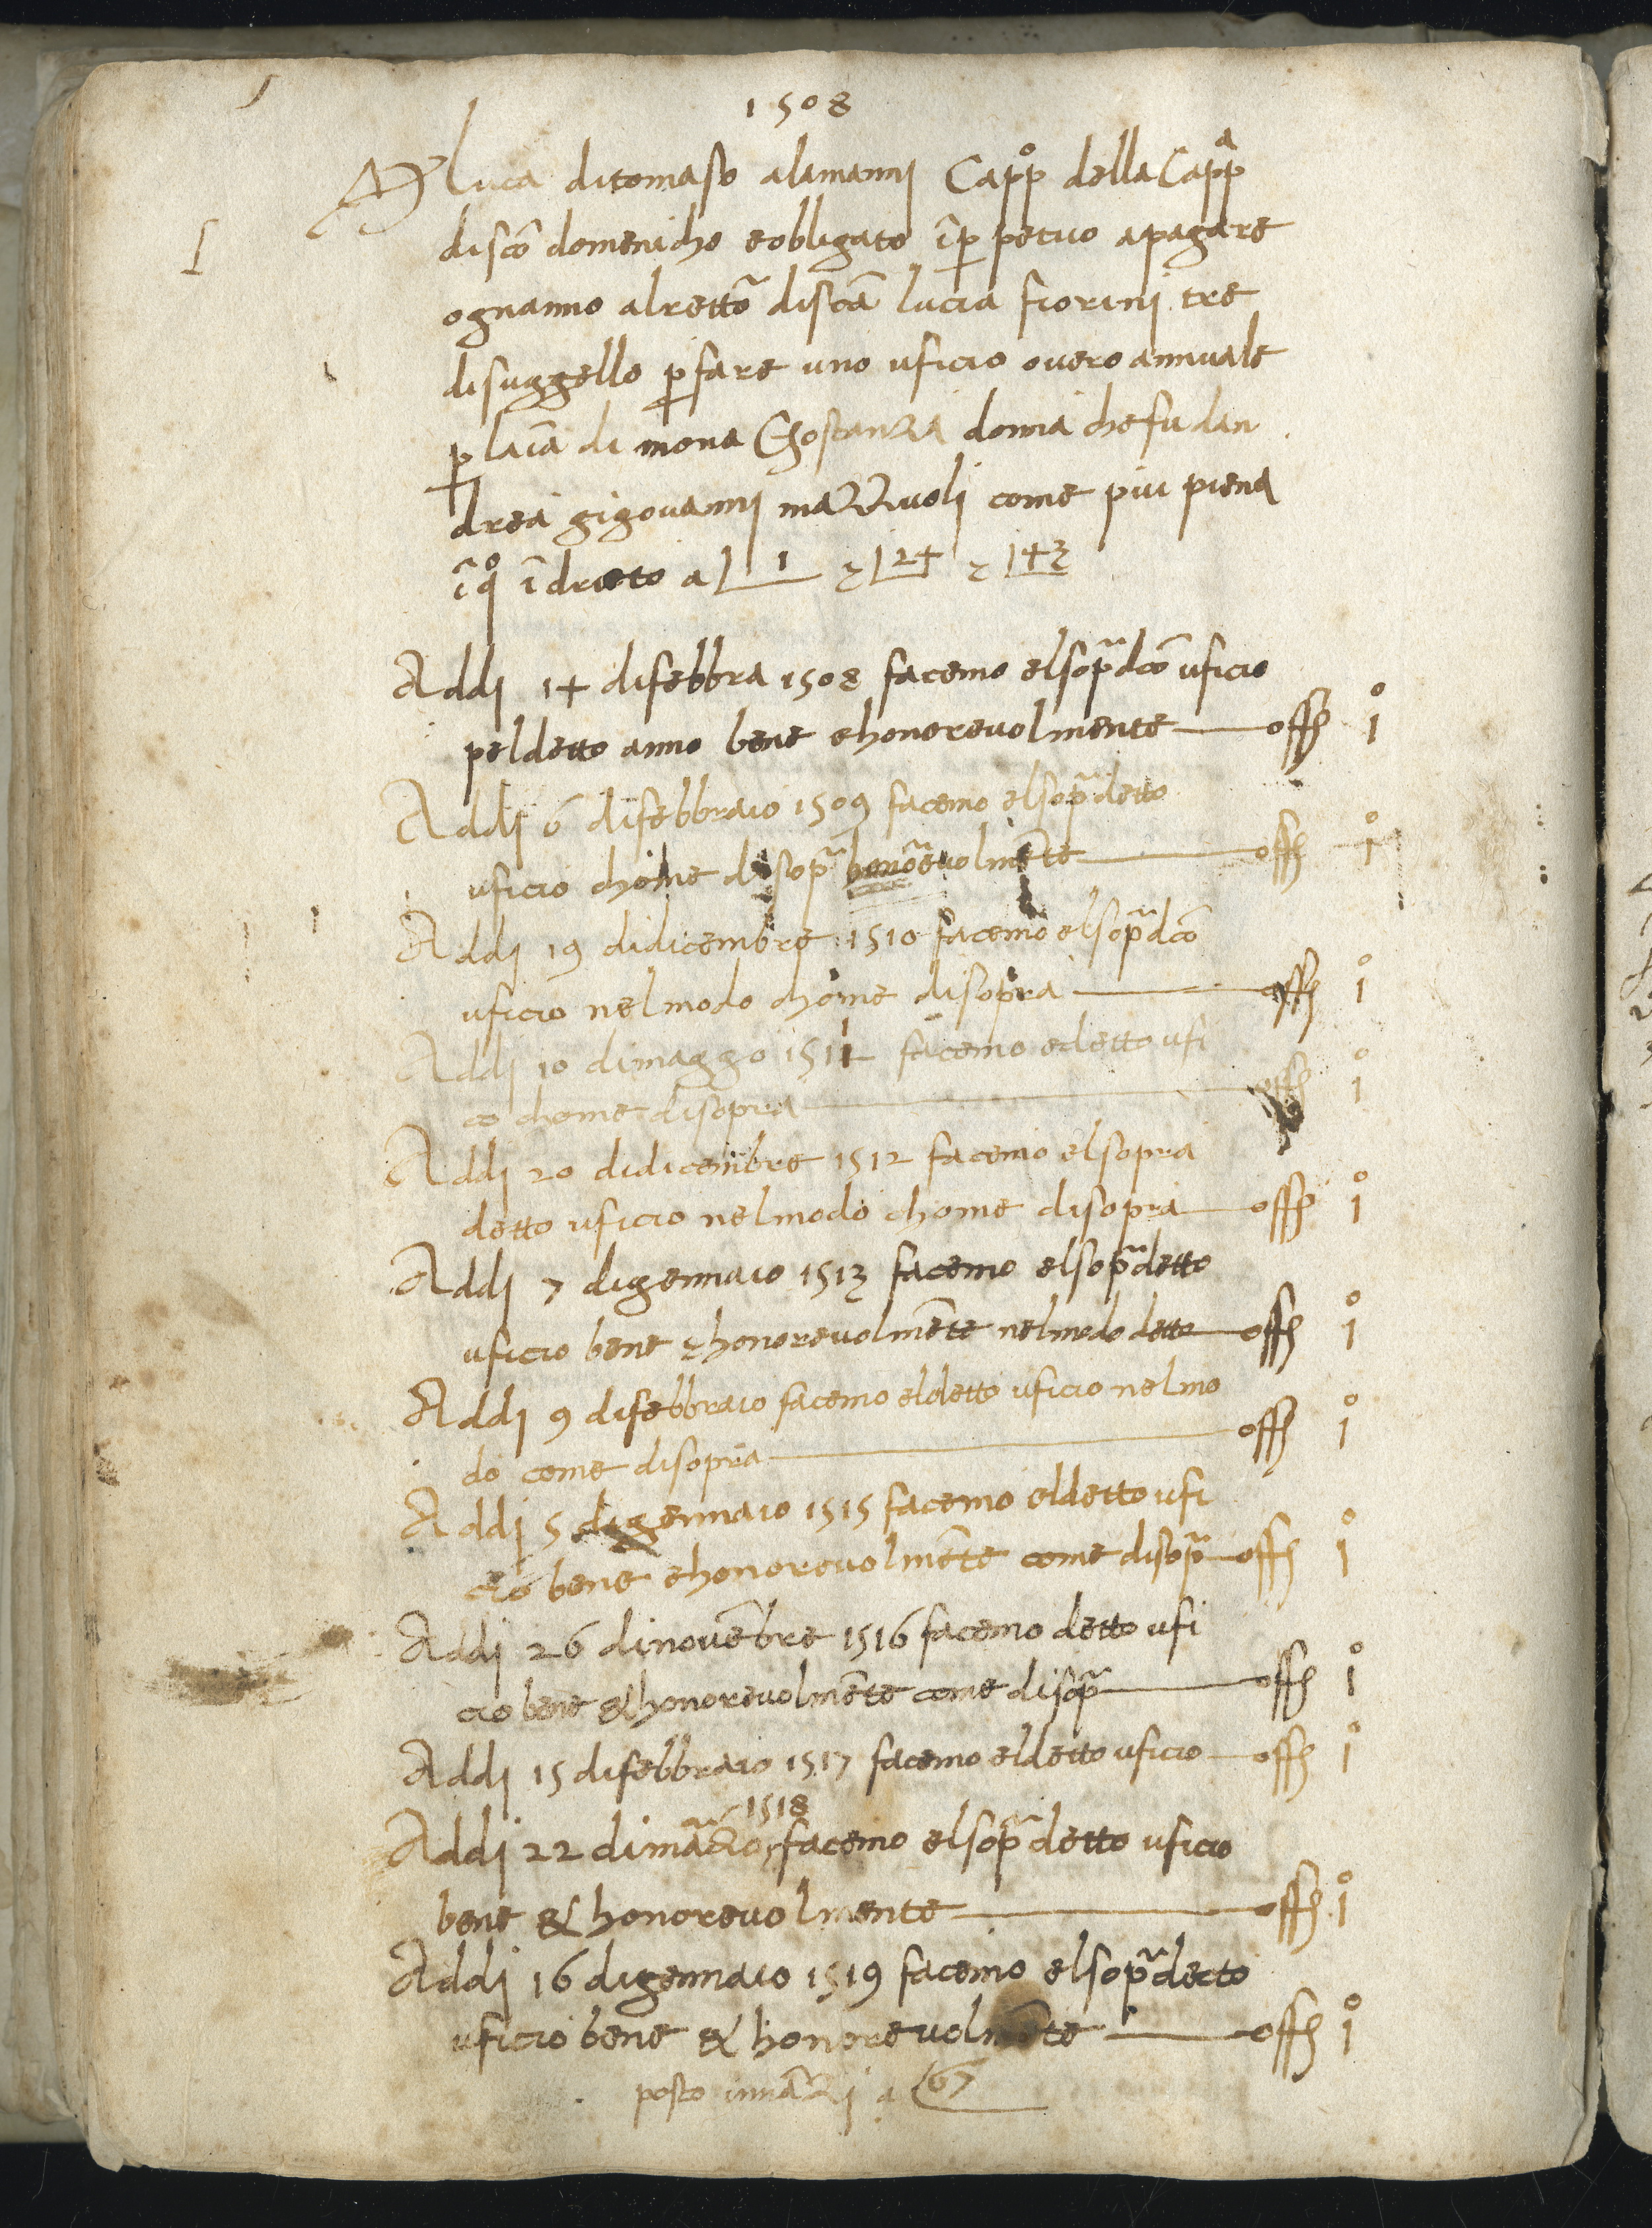 1508
Luca ditomaso alamanni Capp° della Capp̃a
discõ domenicho eobligato ĩ ꝑpetuo apagare
ognanno alrettõ discã lucia fiorini tre
disuggello ꝑ fare uno uficio overo annuale
ꝑ laĩa di mona Ghostanza donna chefu dan
drea gigovanni mazzuoli come piu piena
ĩ q° ĩdrieto a 1 ⁊ 24 ⁊ 43
Addi 14 difebbra 1508 facemo elsop̃adcõ uficio
peldetto anno bene ehonorevolmente — offo 1°
Addi 6 difebbraio 1509 facemo elsop̃adetto
uficio chome disop̃a honorevolmẽte — offo 1°
Addi 19 didicembre 1510 facemo elsop̃adcõ
uficio nelmodo chome disopra — offo 1°
Addi 10 dimaggo 1511 facemo edetto ufi
co chome disopra — offo 1°
Addi 20 didicenbre 1512 facemo elsopra
detto uficio nelmodo chome disopra — offo 1°
Addi 7 digennaio 1513 facemo elsop̃adetto
uficio bene ⁊ honorevolmẽte nelmodo detto — offo 1°
Addi 9 difebbraio facemo eldetto uficio nelmo
do come disopra — offo 1°
Addi 5 digennaio 1515 facemo eldetto ufi
cio bene ehonorevolmẽte come disop̃a — offo 1°
Addi 26 dinovẽbre 1516 facemo detto ufi
cio bene & honorevolmẽte come disop̃a — offo 1°
Addi 15 difebbraio 1517 facemo eldetto uficio — offo 1°
1518
Addi 22 dimãzo facemo elsop̃a detto uficio
bene & honorevolmente — offo 1°
Addi 16 digennaio 1519 facemo elsop̃adecto
uficio bene & honorevolmẽte — offo 1°
posto innãzi a 67